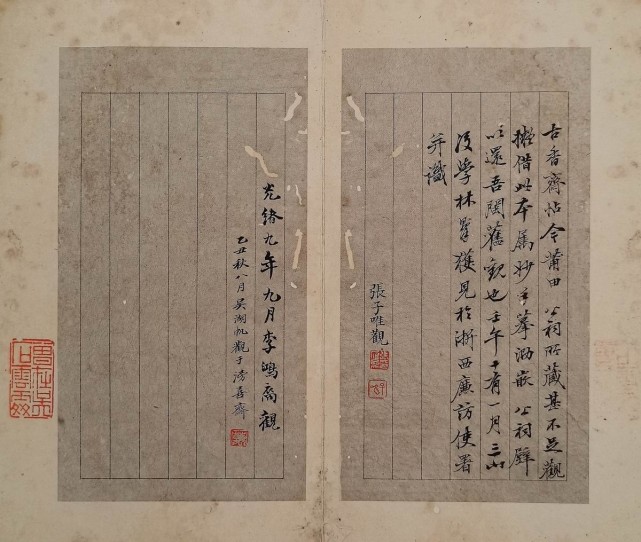 古香齋帖今莆田公祠所藏甚不足觀
擬借此本屬妙手摹泐嵌公祠壁
以還吾閩舊觀也壬午十有一月三山
後學林獲見於浙西廉訪使署
并識
張子唯觀
光緒九年九月李鴻裔觀
乙丑秋八月吳湖帆觀于滂喜齋